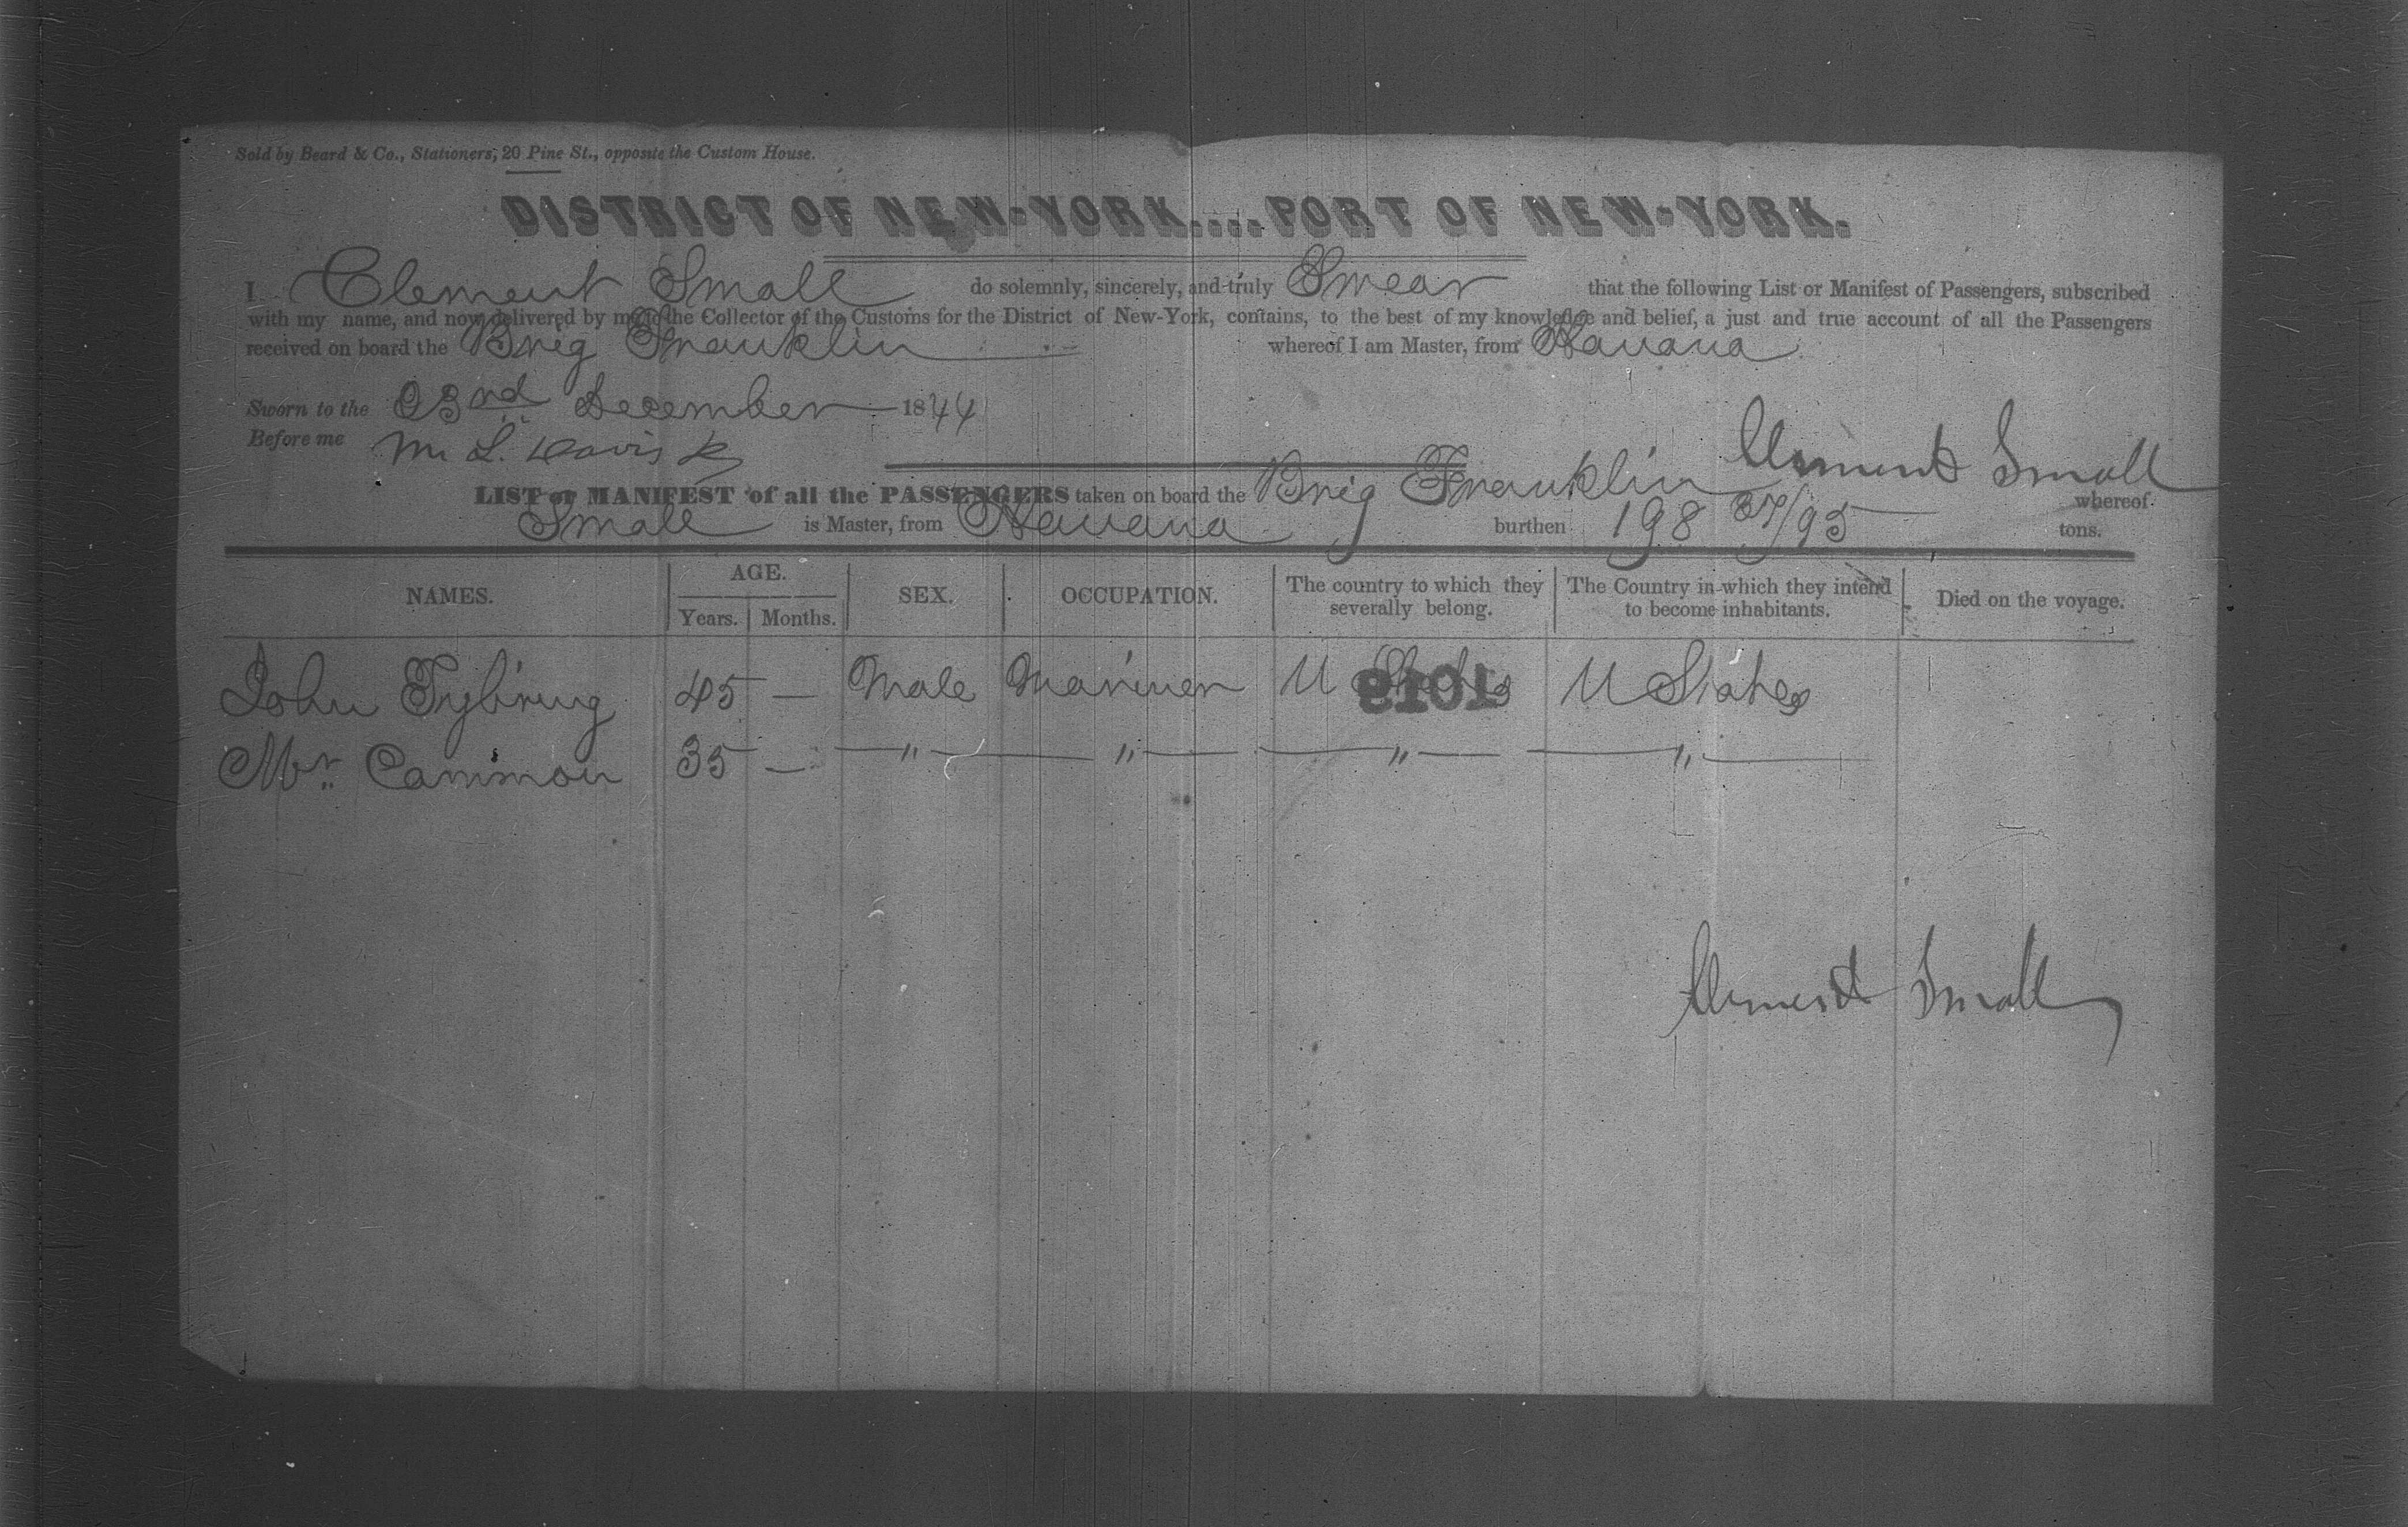 Sold by Beard & Co., Stationers, 20 Pine St., opposite the Custom House.
DISTRICT OF NEW-YORK....PORT OF NEW-YORK.
I Clement Small do solemnly, sincerely, and truly Swear that the following List or Manifest of Passengers, subscribed
with my name, and now delivered by me to the Collector of the Customs for the District of New-York, contains, to the best of my knowledge and belief, a just and true account of all the Passengers
received on board the Brig Franklin whereof I am Master, from Havana
Sworn to the 23rd December 1844
Before me M. L. Davis
Clement Small
LIST or MANIFEST of all the PASSENGERS taken on board the Brig Franklin whereof
Small is Master, from Havana burthen 198 87/95 tons.
NAMES. AGE. Years. Months. SEX. OCCUPATION. The country to which they severally belong. The Country in which they intend to become inhabitants. Died on the voyage.
John 45 — Male Mariner U States U States
1018
Mr. Cammon 35 — " " " "
Clement Small